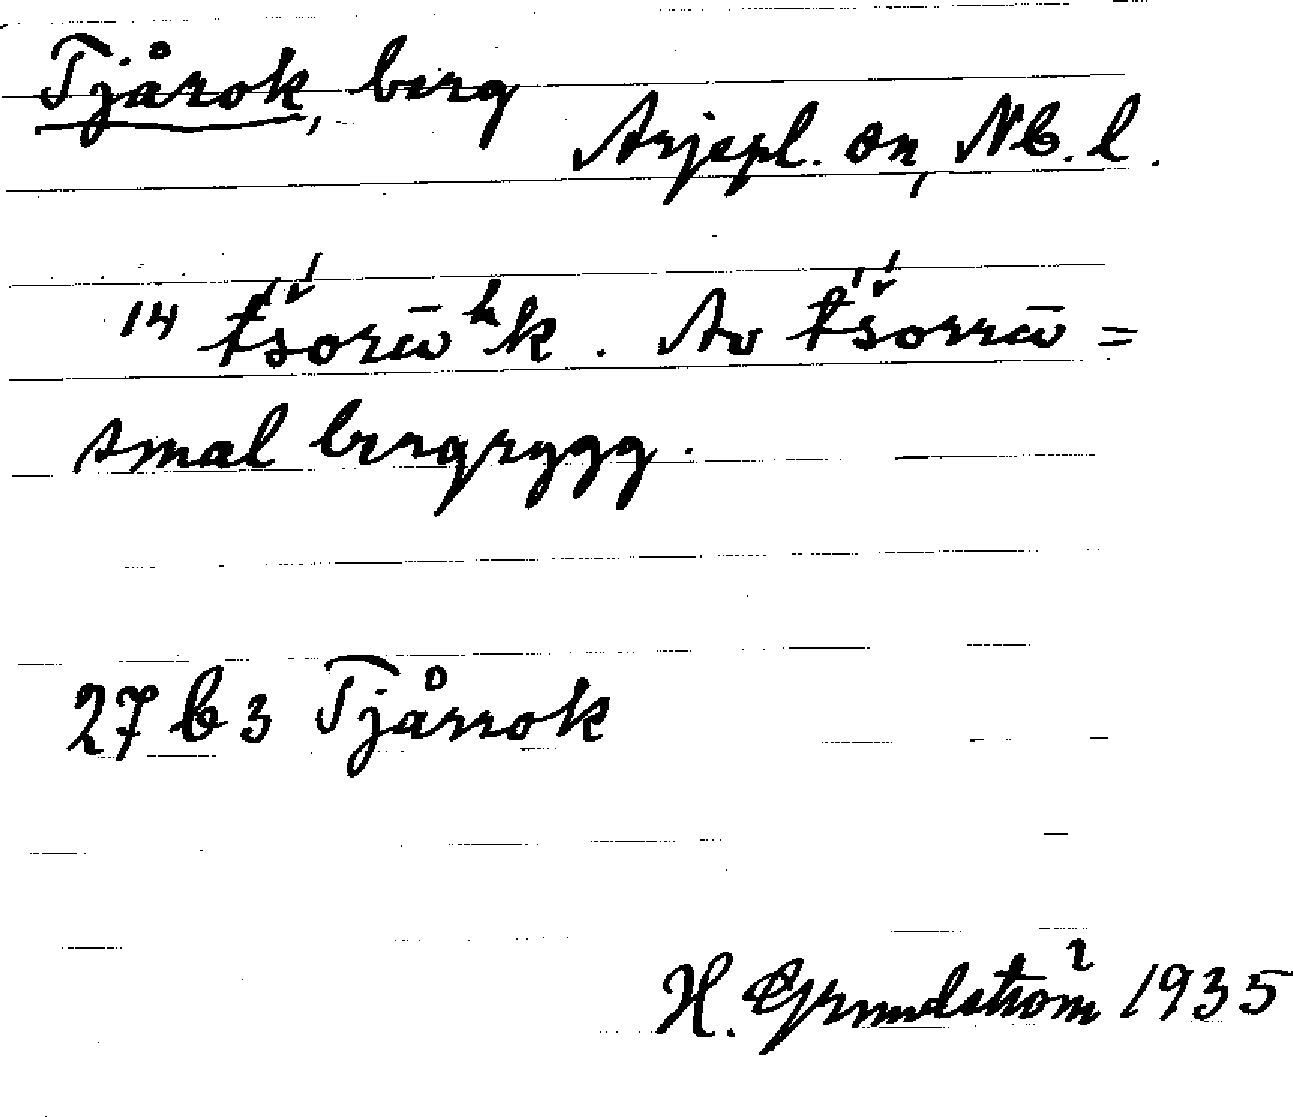 Tjårok, berg
Arjepl. sn, Nb. l.
14 t́šorūʰk. Av t́šorrū =
smal bergrygg.
27 b 3 Tjårrok
H. Grundström 1935